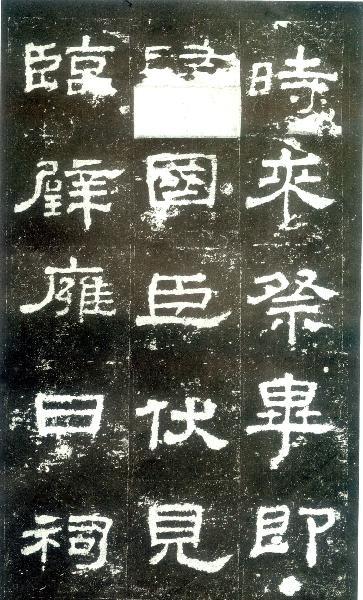 時來祭畢即
國臣伏見
臨辟雍日祠